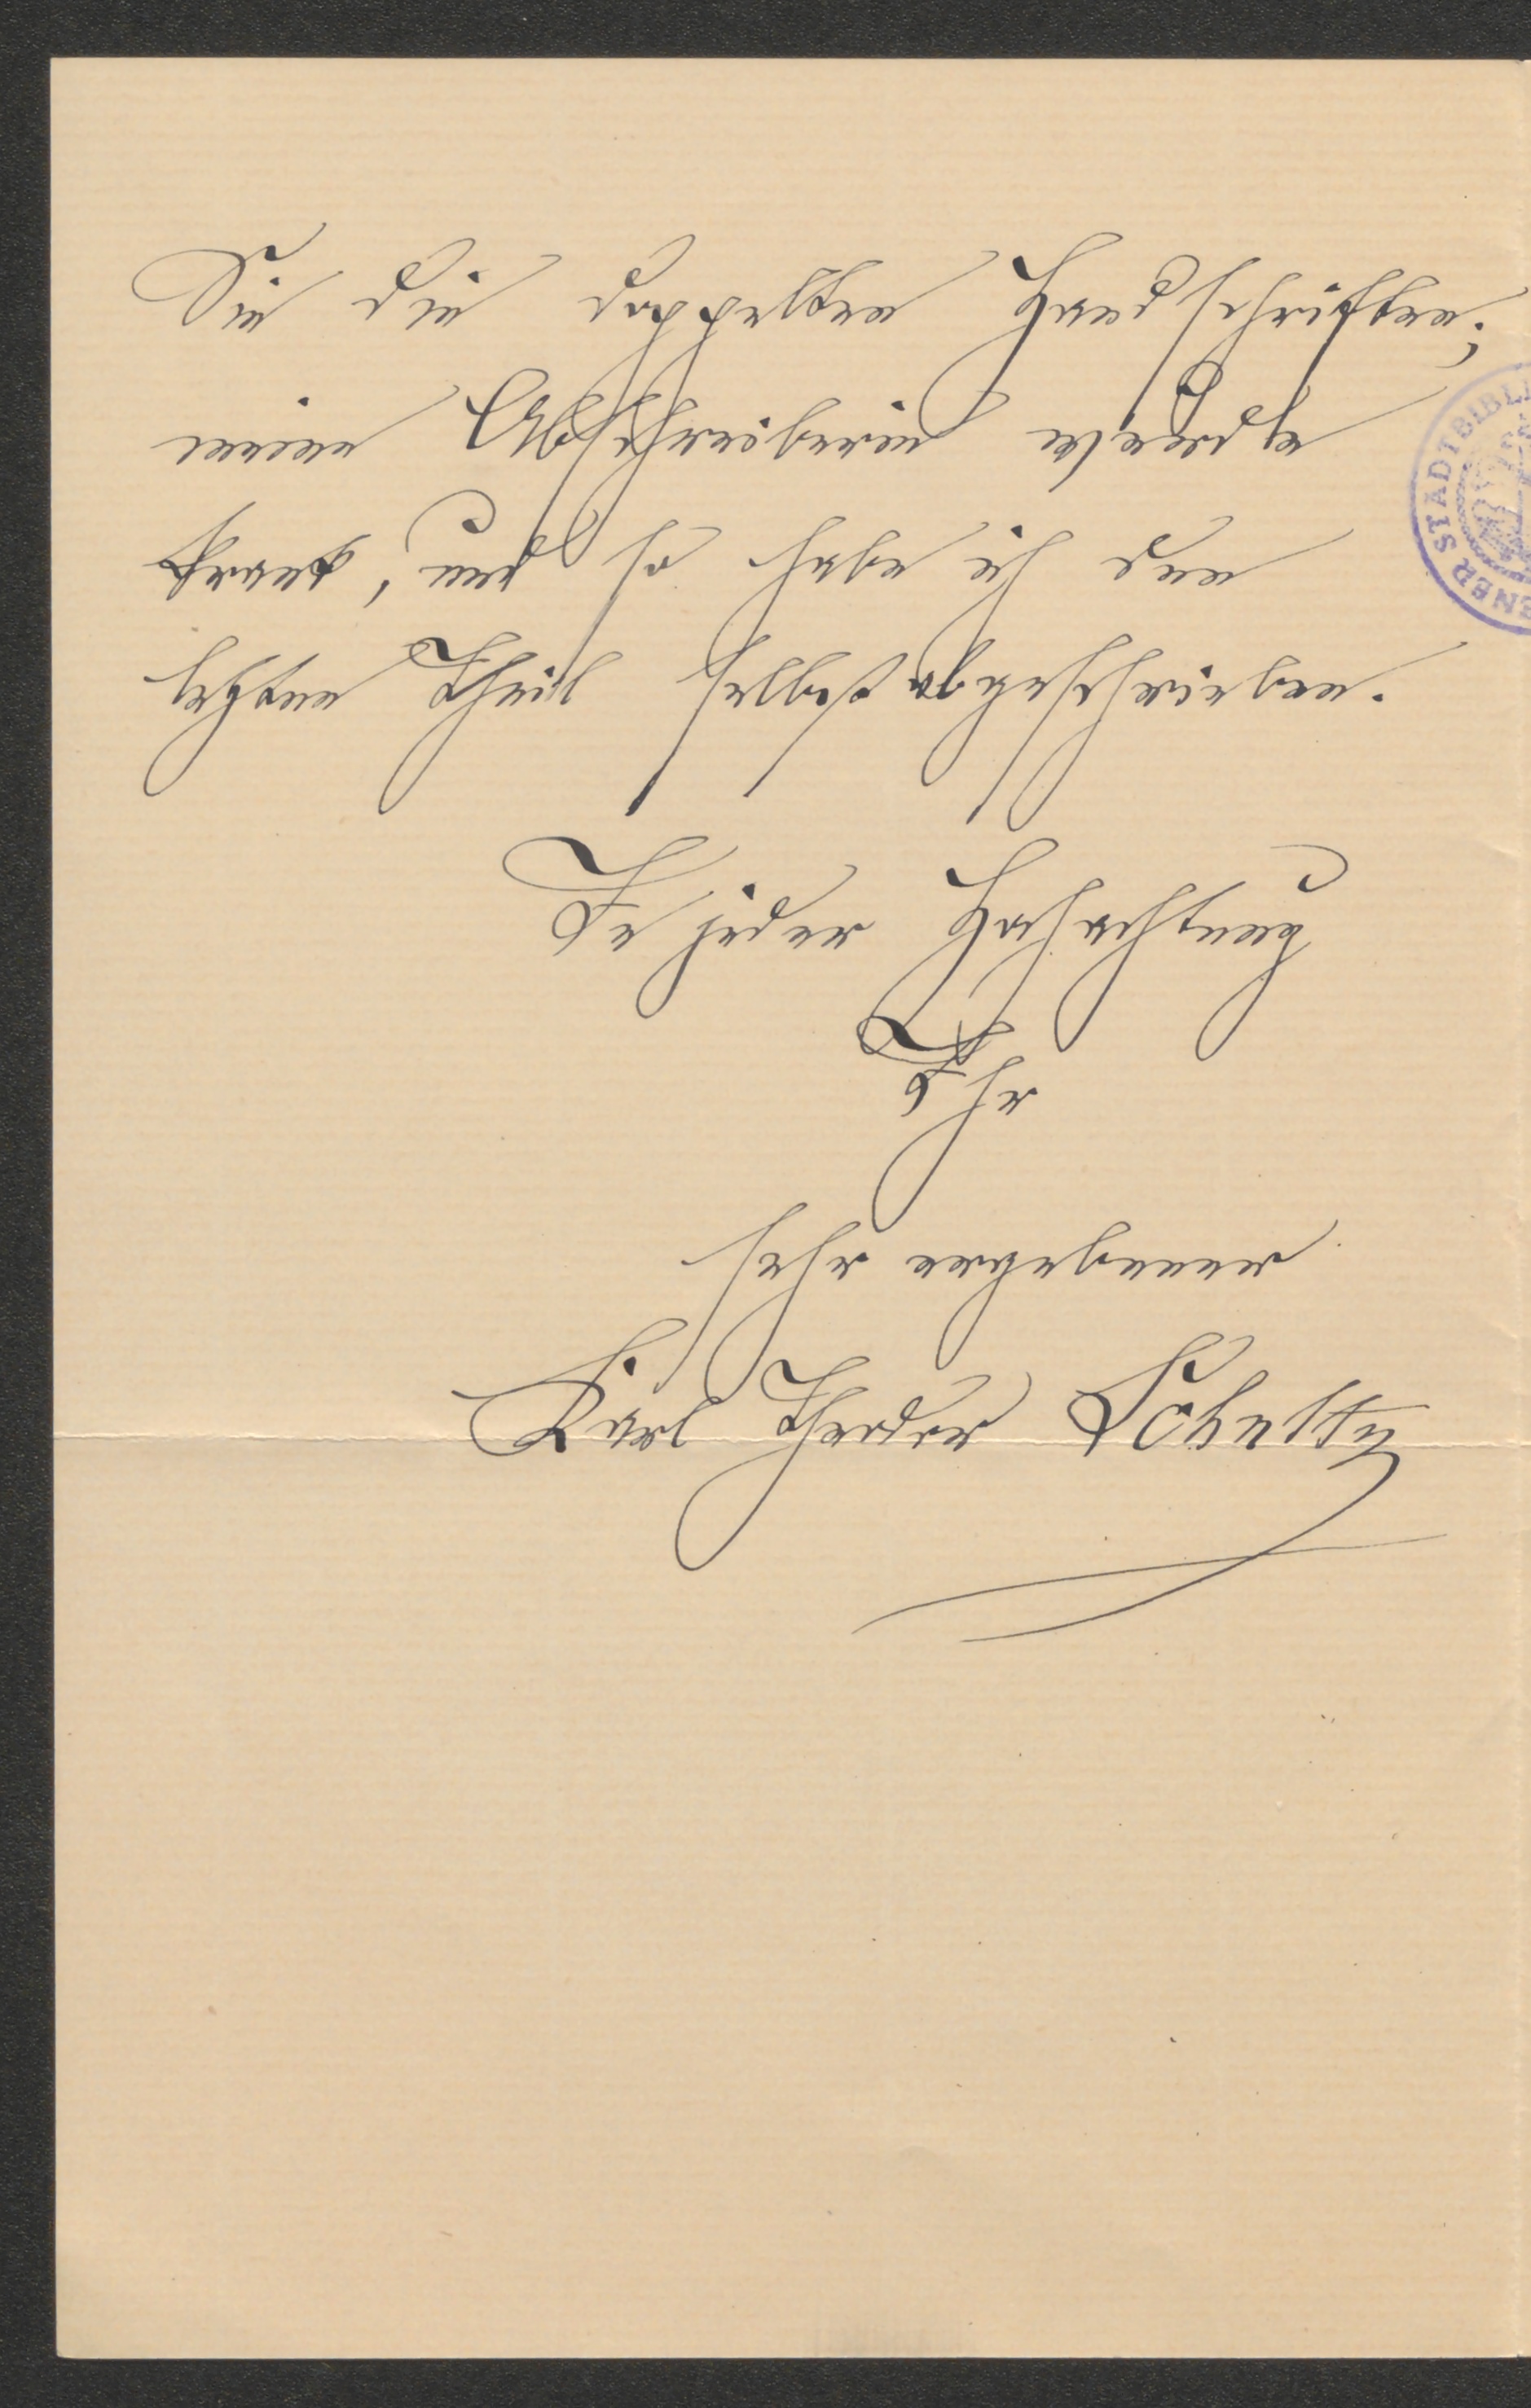 Sie die doppelten Handschriften;
meine Abschreiberin wurde
krank, und so habe ich den
letzten Theil selbst abgeschrieben.
In jeder Hochachtung
Ihr
sehr ergebener
Karl Theodor Schultz
ENER STÄDTBIBLI